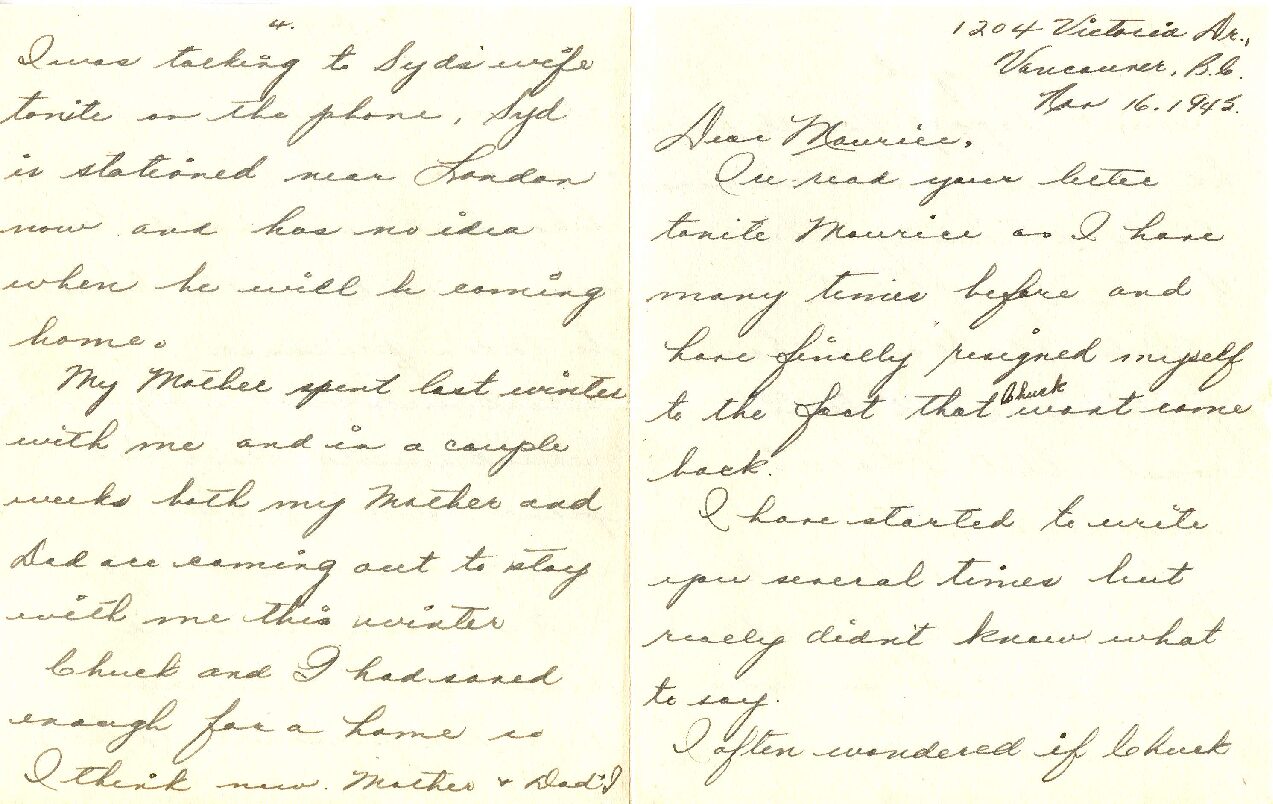 4.
I was talking to Syd's wife
tonite on the phone, Syd
is stationed near London
now and has no idea
when he will be coming
home.
My Mother spent last winter
with me and in a couple
weeks both my Mother and
Dad are coming out to stay
with me this winter
Chuck and I had saved
enough for a home so
I think now Mother & Dad & I
1204 Victoria Dr.,
Vancouver, B.C.
Nov 16. 1945.
Dear Maurice,
I've read your letter
tonite Maurice as I have
many times before and
have finally resigned myself
to the fact that Chuck wont come
back.
I have started to write
you several times but
really didn't know what
to say.
I often wondered if Chuck